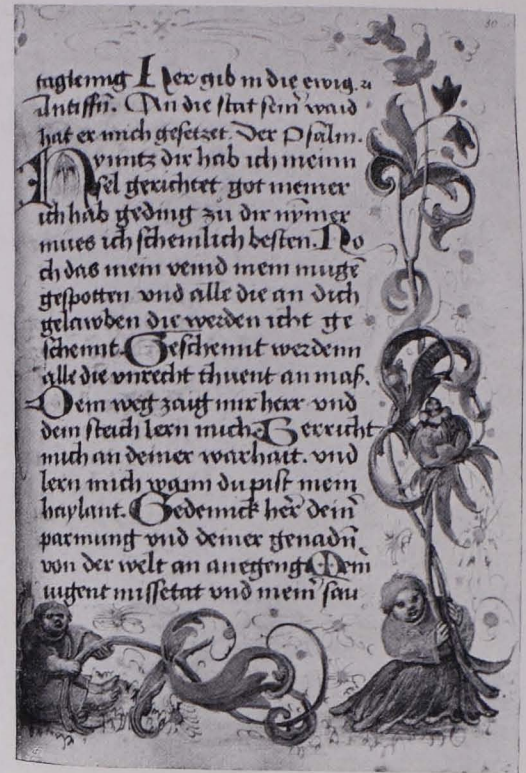 30
taglening Her gib in die ewig. u
Antiffn. An die stat sein waid
hat er mich gesetzet. Der Psalm.
Hymntz dir hab ich meinn
sel gerichtet got meiner
ich hab geding zu dir nymer
mues ich schemlich besten. No
ch das mein veind mein mugē
gespotten vnd alle die an dich
gelawben die werden icht ge
schennt. Geschennt werdenn
alle die vnrecht thuent an maß.
Dein weg zaig mir herr vnd
dein steich lern mich. Gerricht
mich an deiner warhait. vnd
lern mich wann du pist mein
haylant. Gedennck her dein̄
parmung vnd deiner genadn̄
von der welt an anegeng Mein̄
iugent missetat vnd mein̄ sau